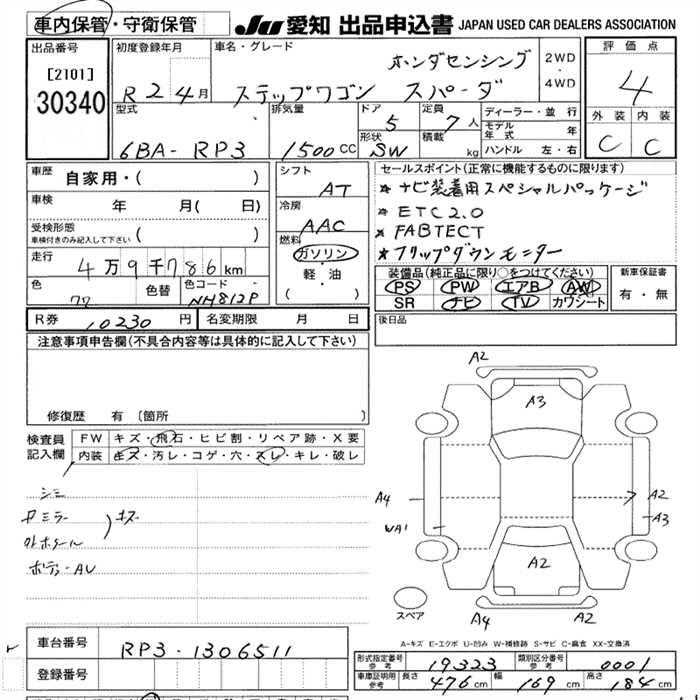 車内保管・守衛保管
JU 愛知 出品申込書 JAPAN USED CAR DEALERS ASSOCIATION
出品番号
[2101]
30340
初度登録年月
R 2 4月
車名・グレード
ホンダセンシング
ステップワゴン スパーダ
2WD
4WD
評価点
4
外装 内装
C C
型式
6BA-RP3
排気量
1500cc
ドア 5
形状 SW
定員 7人
積載 kg
ディーラー・並行
モデル年式 年
ハンドル 左・右
車歴 自家用・( )
車検 年 月( 日)
受検形態
車検付きのみ記入して下さい ( )
走行 4万9千786km
色 色替 色コード
NH812P
シフト
AT
冷房
AAC
燃料
ガソリン
軽・油
( )
セールスポイント(正常に機能するものに限ります)
* ナビ装着用スペシャルパッケージ
* ETC2.0
* FABTECT
* フリップダウンモニター
装備品(純正品に限り○をつけてください)
PS PW エアB AW
SR ナビ TV カワシート
新車保証書
有・無
R券 10230円 名変期限 月 日
後日品
注意事項申告欄(不具合内容等は具体的に記入して下さい)
修復歴 有 〔箇所 〕
検査員記入欄
FW キズ・飛石・ヒビ割・リペア跡・X要
内装 キズ・汚レ・コゲ・穴・スレ・キレ・破レ
シミ
キズ
A2
A3
A4
WA1
A2
A3
A2
A4
A2
スペア
A-キズ E-エクボ U-凹み W-補修跡 S-サビ C-腐食 XX-交換済
車台番号 RP3-1306511
登録番号
形式指定番号 参考 19323
類別区分番号 参考 0001
車庫証明用 参考 長さ 476cm 幅 169cm 高さ 184cm